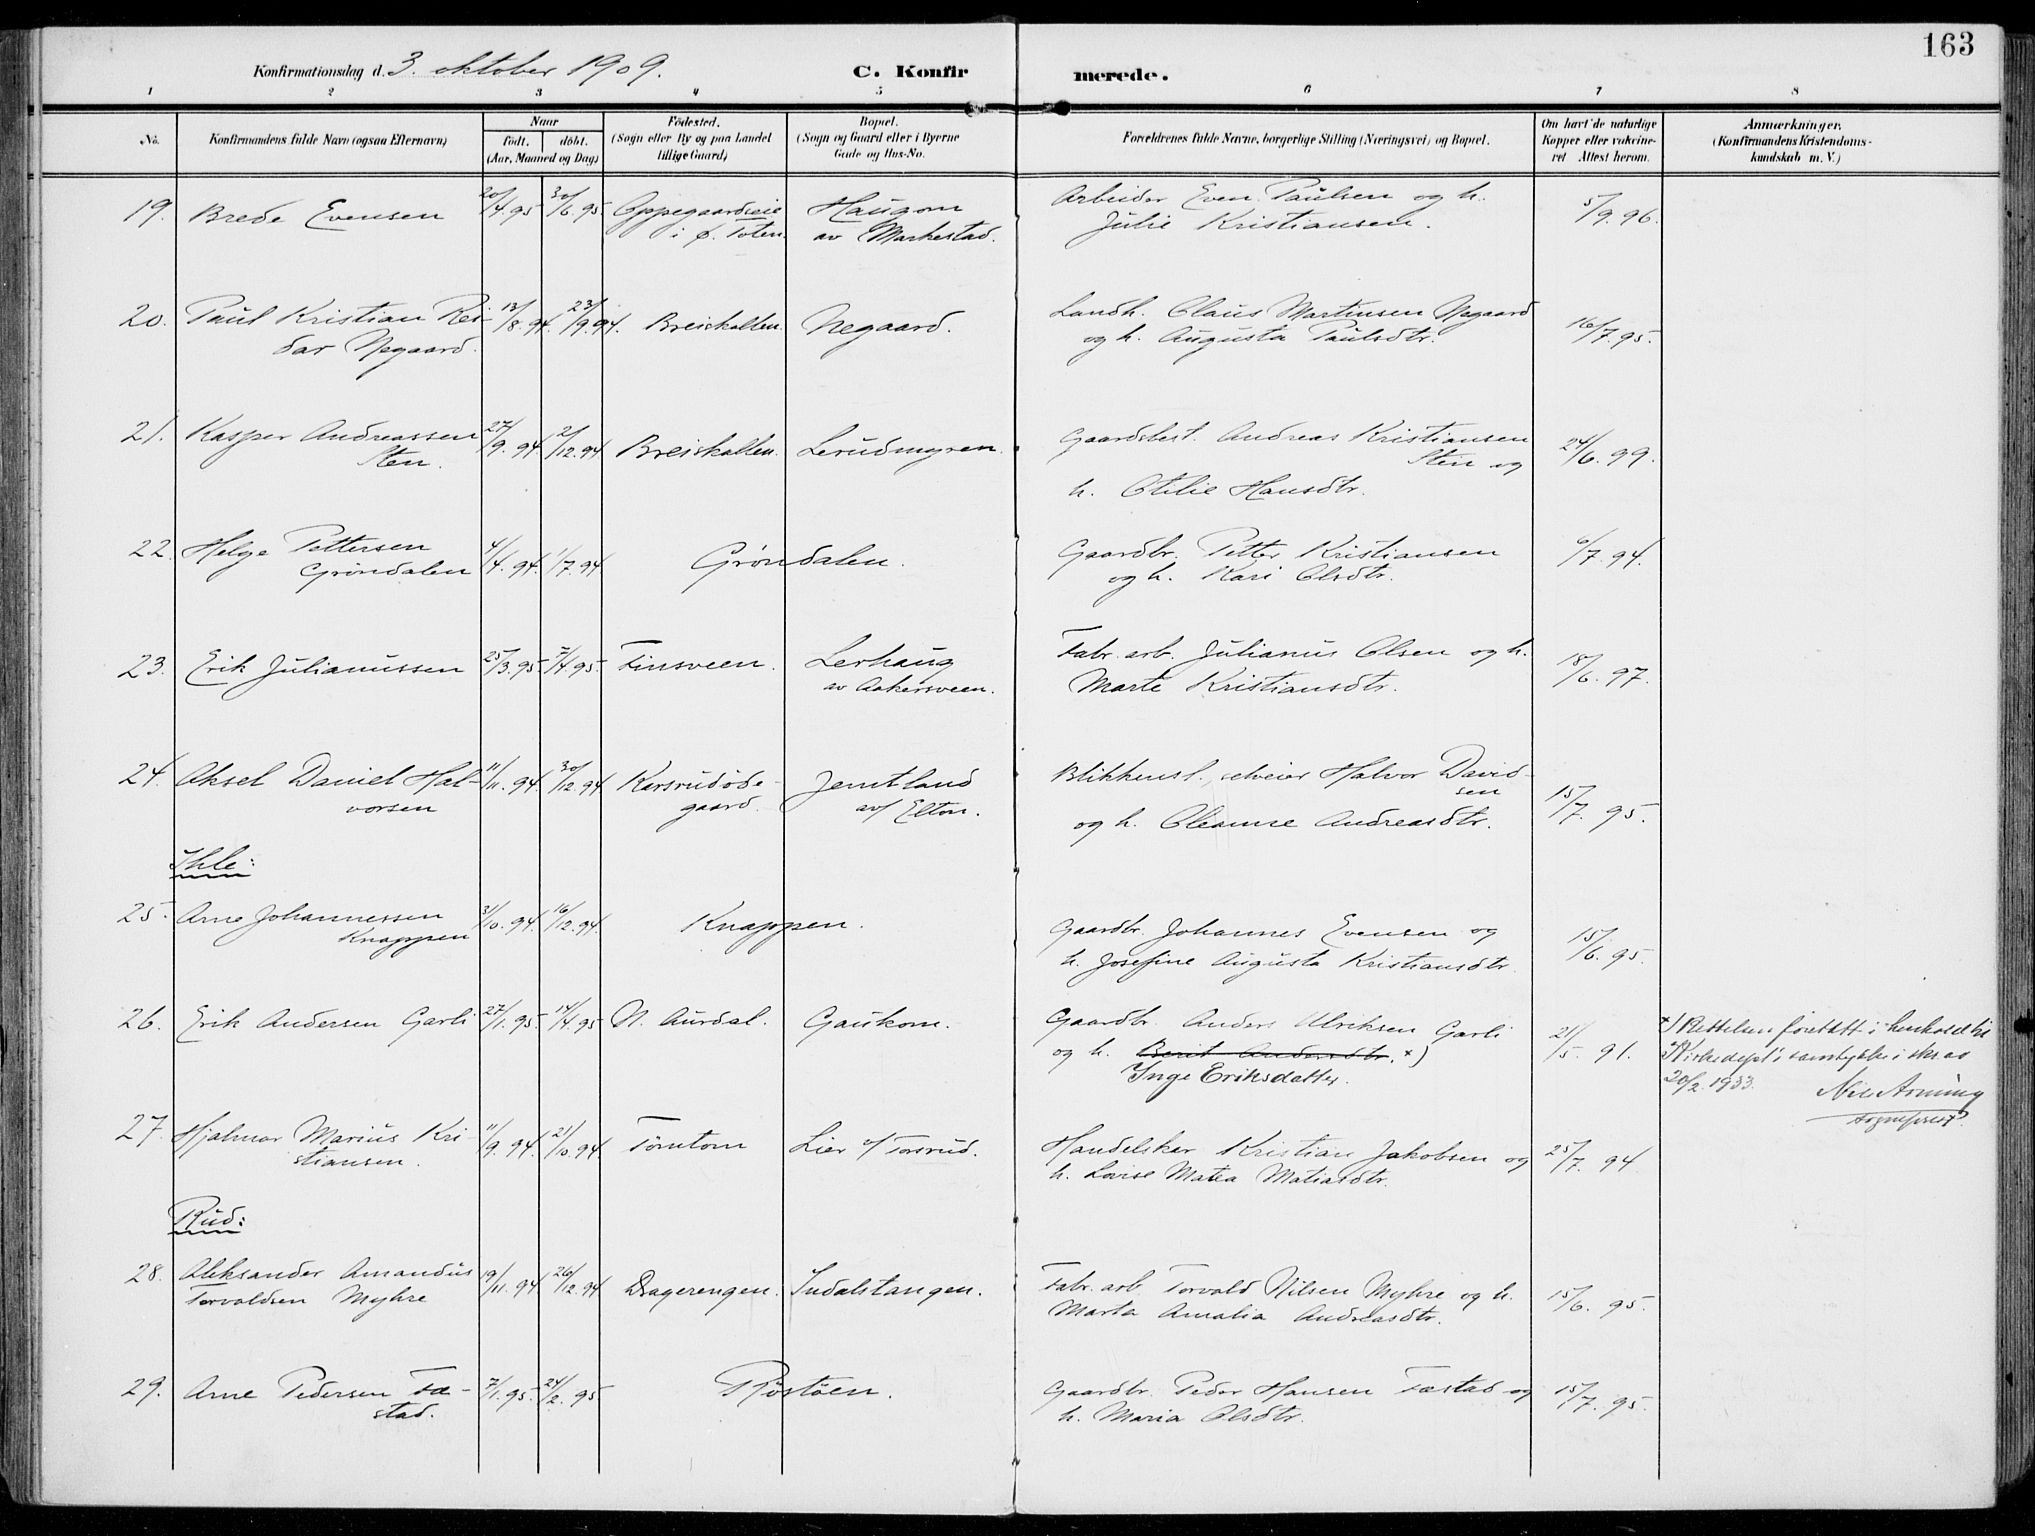 163
Konfirmationsdag d. 3. oktober 1909. C. Konfirmerede.
1 2 3 4 5 6 7 8
No. Konfirmandens fulde Navn (ogsaa Efternavn) Naar födt. döbt. (Aar, Maaned og Dag) Födested. (Sogn eller By og paa Landet tillige Gaard) Bopæl. (Sogn og Gaard eller i Byerne Gade og Hus-No. Forældrenes fulde Navne, borgerlige Stilling (Næringsvei) og Bopæl. Om havt de naturlige Kopper eller vakcineret Attest herom. Anmærkninger. (Konfirmandens Kristendomskundskab m. V.)
19. Brede Evensen 20/4.95 30/6.95 Oppegaardseie Haugom Arbeider Even Paulsen og h. 5/9.96.
i ø. Toten. av Markestad. Julie Kristiansen.
20. Paul Kristian Rei- 13/8.94. 23/9.94. Breiskallen. Negaard. Landh. Claus Martinsen Negaard 16/7.95.
dar Negaard. og h. Augusta Paulsdtr.
21. Kasper Andreassen 27/9.94. 2/12.94 Breiskallen. Lerudmyren. Gaardbest. Andreas Kristiansen 24/6.99.
Sten. Stein og
h. Otilie Hansdtr.
22. Helge Pettersen 4/4.94. 1/7.94 Grøndalen. Gaardbr. Petter Kristiansen 6/7.94.
Grøndalen og h. Kari Olsdtr.
23. Erik Julianussen 25/3.95. 7/4.95. Finsveen. Lerhaug Fabr. arb. Julianus Olsen og h. 18/6.97.
av Aakersveen. Marte Kristiansdtr.
24. Aksel Daniel Hal- 11/11.94. 30/12.94 Karsrudøde- Jemtland Blikkensl., selveier Halvor David-
vorsen gaard. avf Elton. sen 15/7.95.
og h. Oleanne Andreasdtr.
Ihle:
25. Arne Johannessen 31/10.94. 16/12.94. Knappen. Gaardbr. Johannes Evensen og 15/6.95.
Knappen h. Josefine Augusta Kristiansdtr.
26. Erik Andersen Garli 27/1.95. 14/4.95 N. Aurdal. Gaukom. Gaardbr. Anders Ulriksen Garli 21/5.91. x) Rettelsen foretatt i henhold til
og h. Berit Andersdtr. x) Kirkedept's samtykke i skr. av
Inge Eriksdatter. 20/2.1933.
sogneprest.
27. Hjalmar Marius Kri- 11/9.94. 21/10.94. Tømtom Lier u/ Torsrud. Handelskar Kristian Jakobsen og 25/7.94
stiansen. h. Lovise Matea Matiasdtr.
Rud:
28. Aleksander Amandus 19/11.94. 26/12.94 Dragerengen. Indalstangen. Fabr. arb. Torvald Nilsen Myhre og h. 15/6.95.
Torvaldsen Myhre Marta Amalia Andreasdtr.
29. Arne Pedersen Fæ- 7/1.95. 24/2.95 Røstøen. Gaardbr. Peder Hansen Fæstad og 15/7.95.
stad. h. Maria Olsdtr.